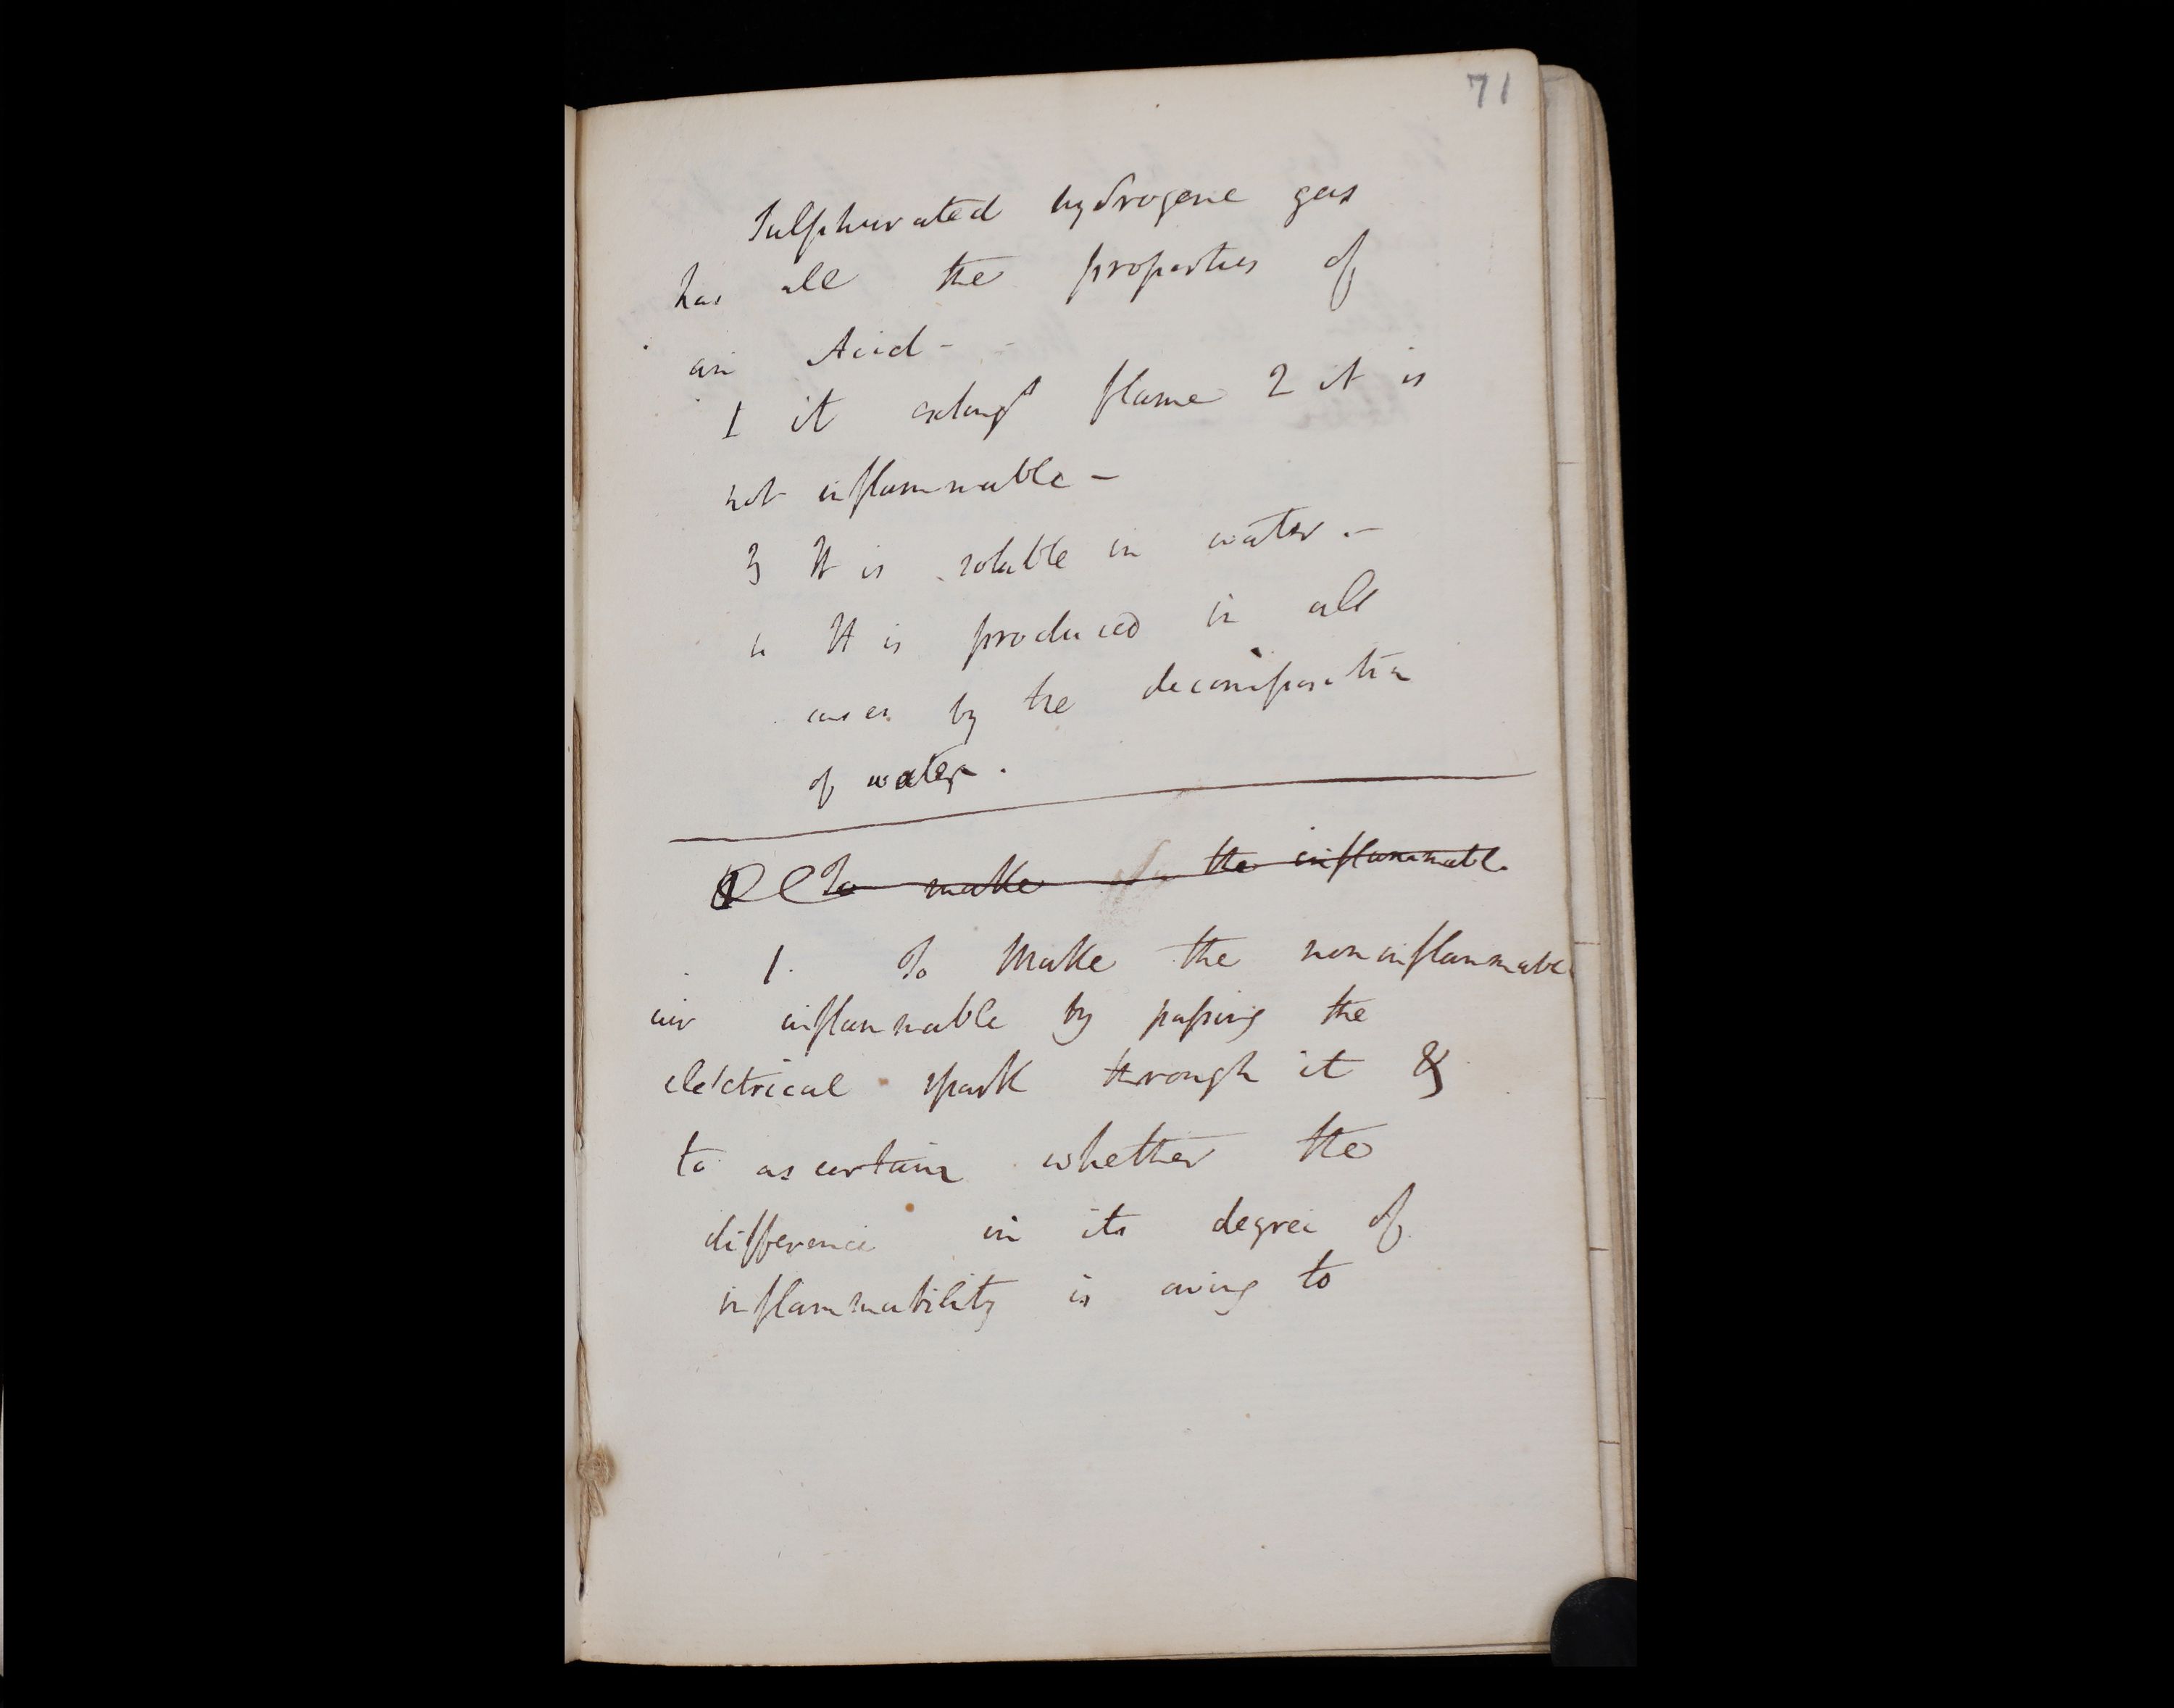 71
Sulphurated hydrogene gas
has all the properties of
an Acid -
1 it extings flame 2 it is
not inflammable -
3 It is soluble in water. -
4 It is produced in all
cases by the decomposition
of water.
To make the inflammable
1. To Make the noninflammable
air inflammable by passing the
electrical spark through it &
to ascertain whether the
difference in its degree of
inflammability is owing to